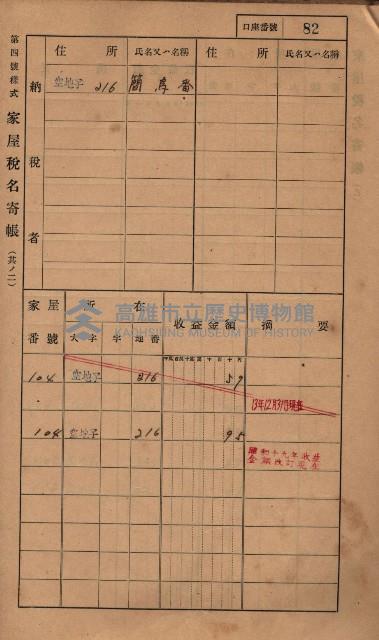 口座番號 82
第四號樣式 家屋稅名寄帳 (其ノ二)
住所 氏名又ハ名稱 住所 氏名又ハ名稱
納稅者
空地子 216 簡 番
家屋番號 所在 收益金額 摘要
大字 字 地番
104 空地子 216 59
13年12月31日現在
104 空地子 216 95
昭和十九年收益
金額改訂
高雄市立歷史博物館
KAOHSIUNG MUSEUM OF HISTORY